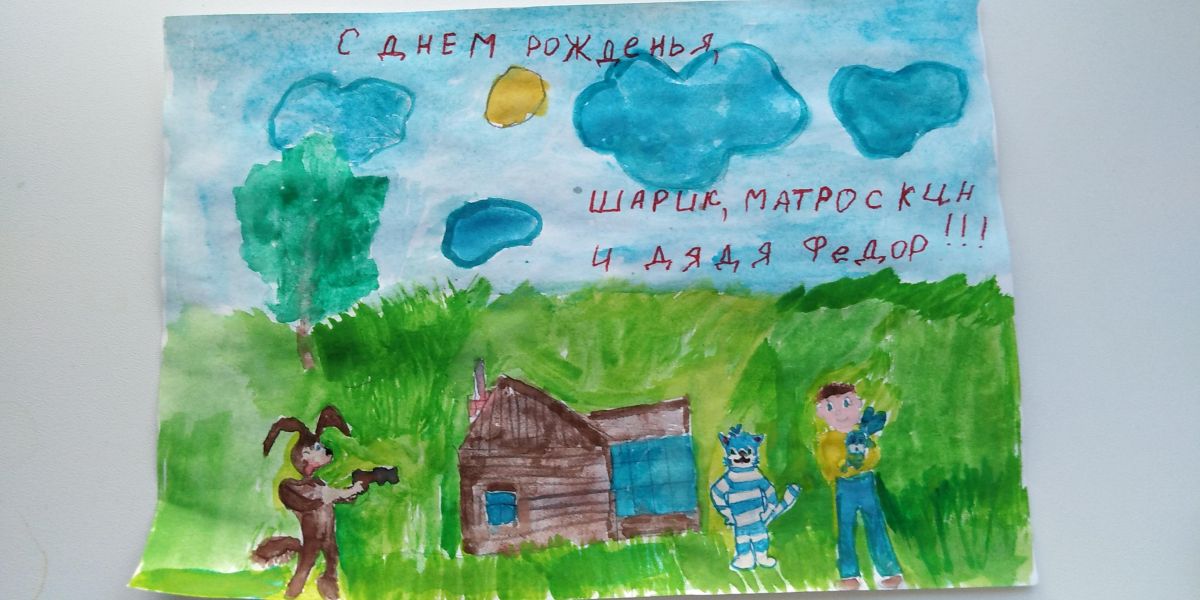 С ДНЕМ РОЖДЕНЬЯ,
ШАРИК, МАТРОСКИН
И ДЯДЯ ФЕДОР!!!